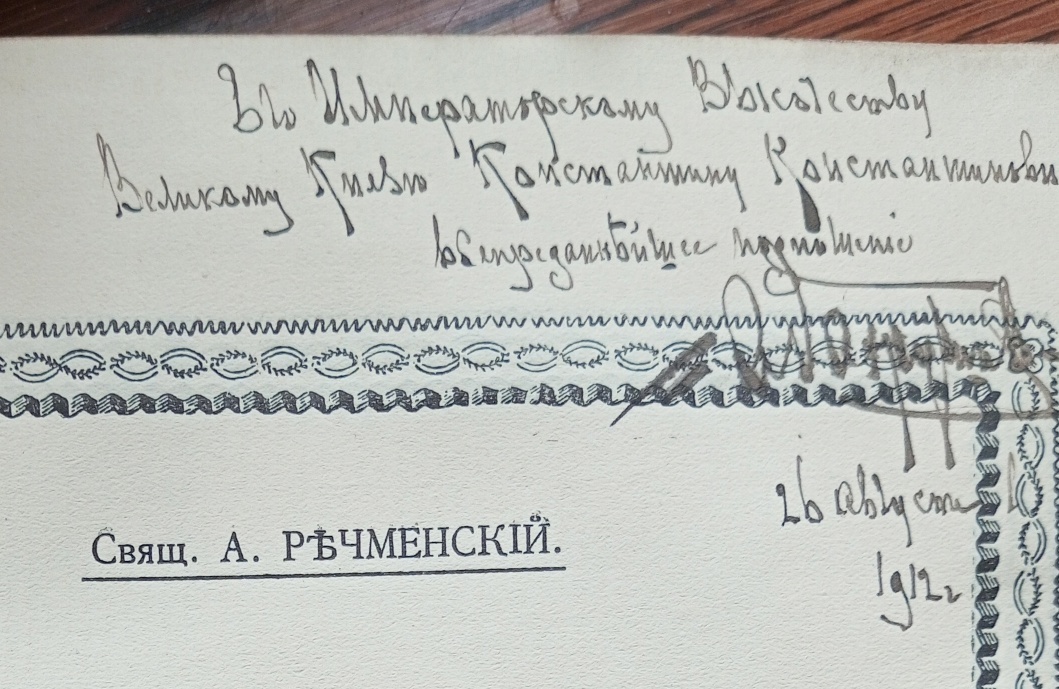 Его Императорскому Высочеству
Великому Князю Константину Константинови
всепреданнѣйшее подношеніе
26 августа
1912 г
Свящ. А. РѢЧМЕНСКІЙ.